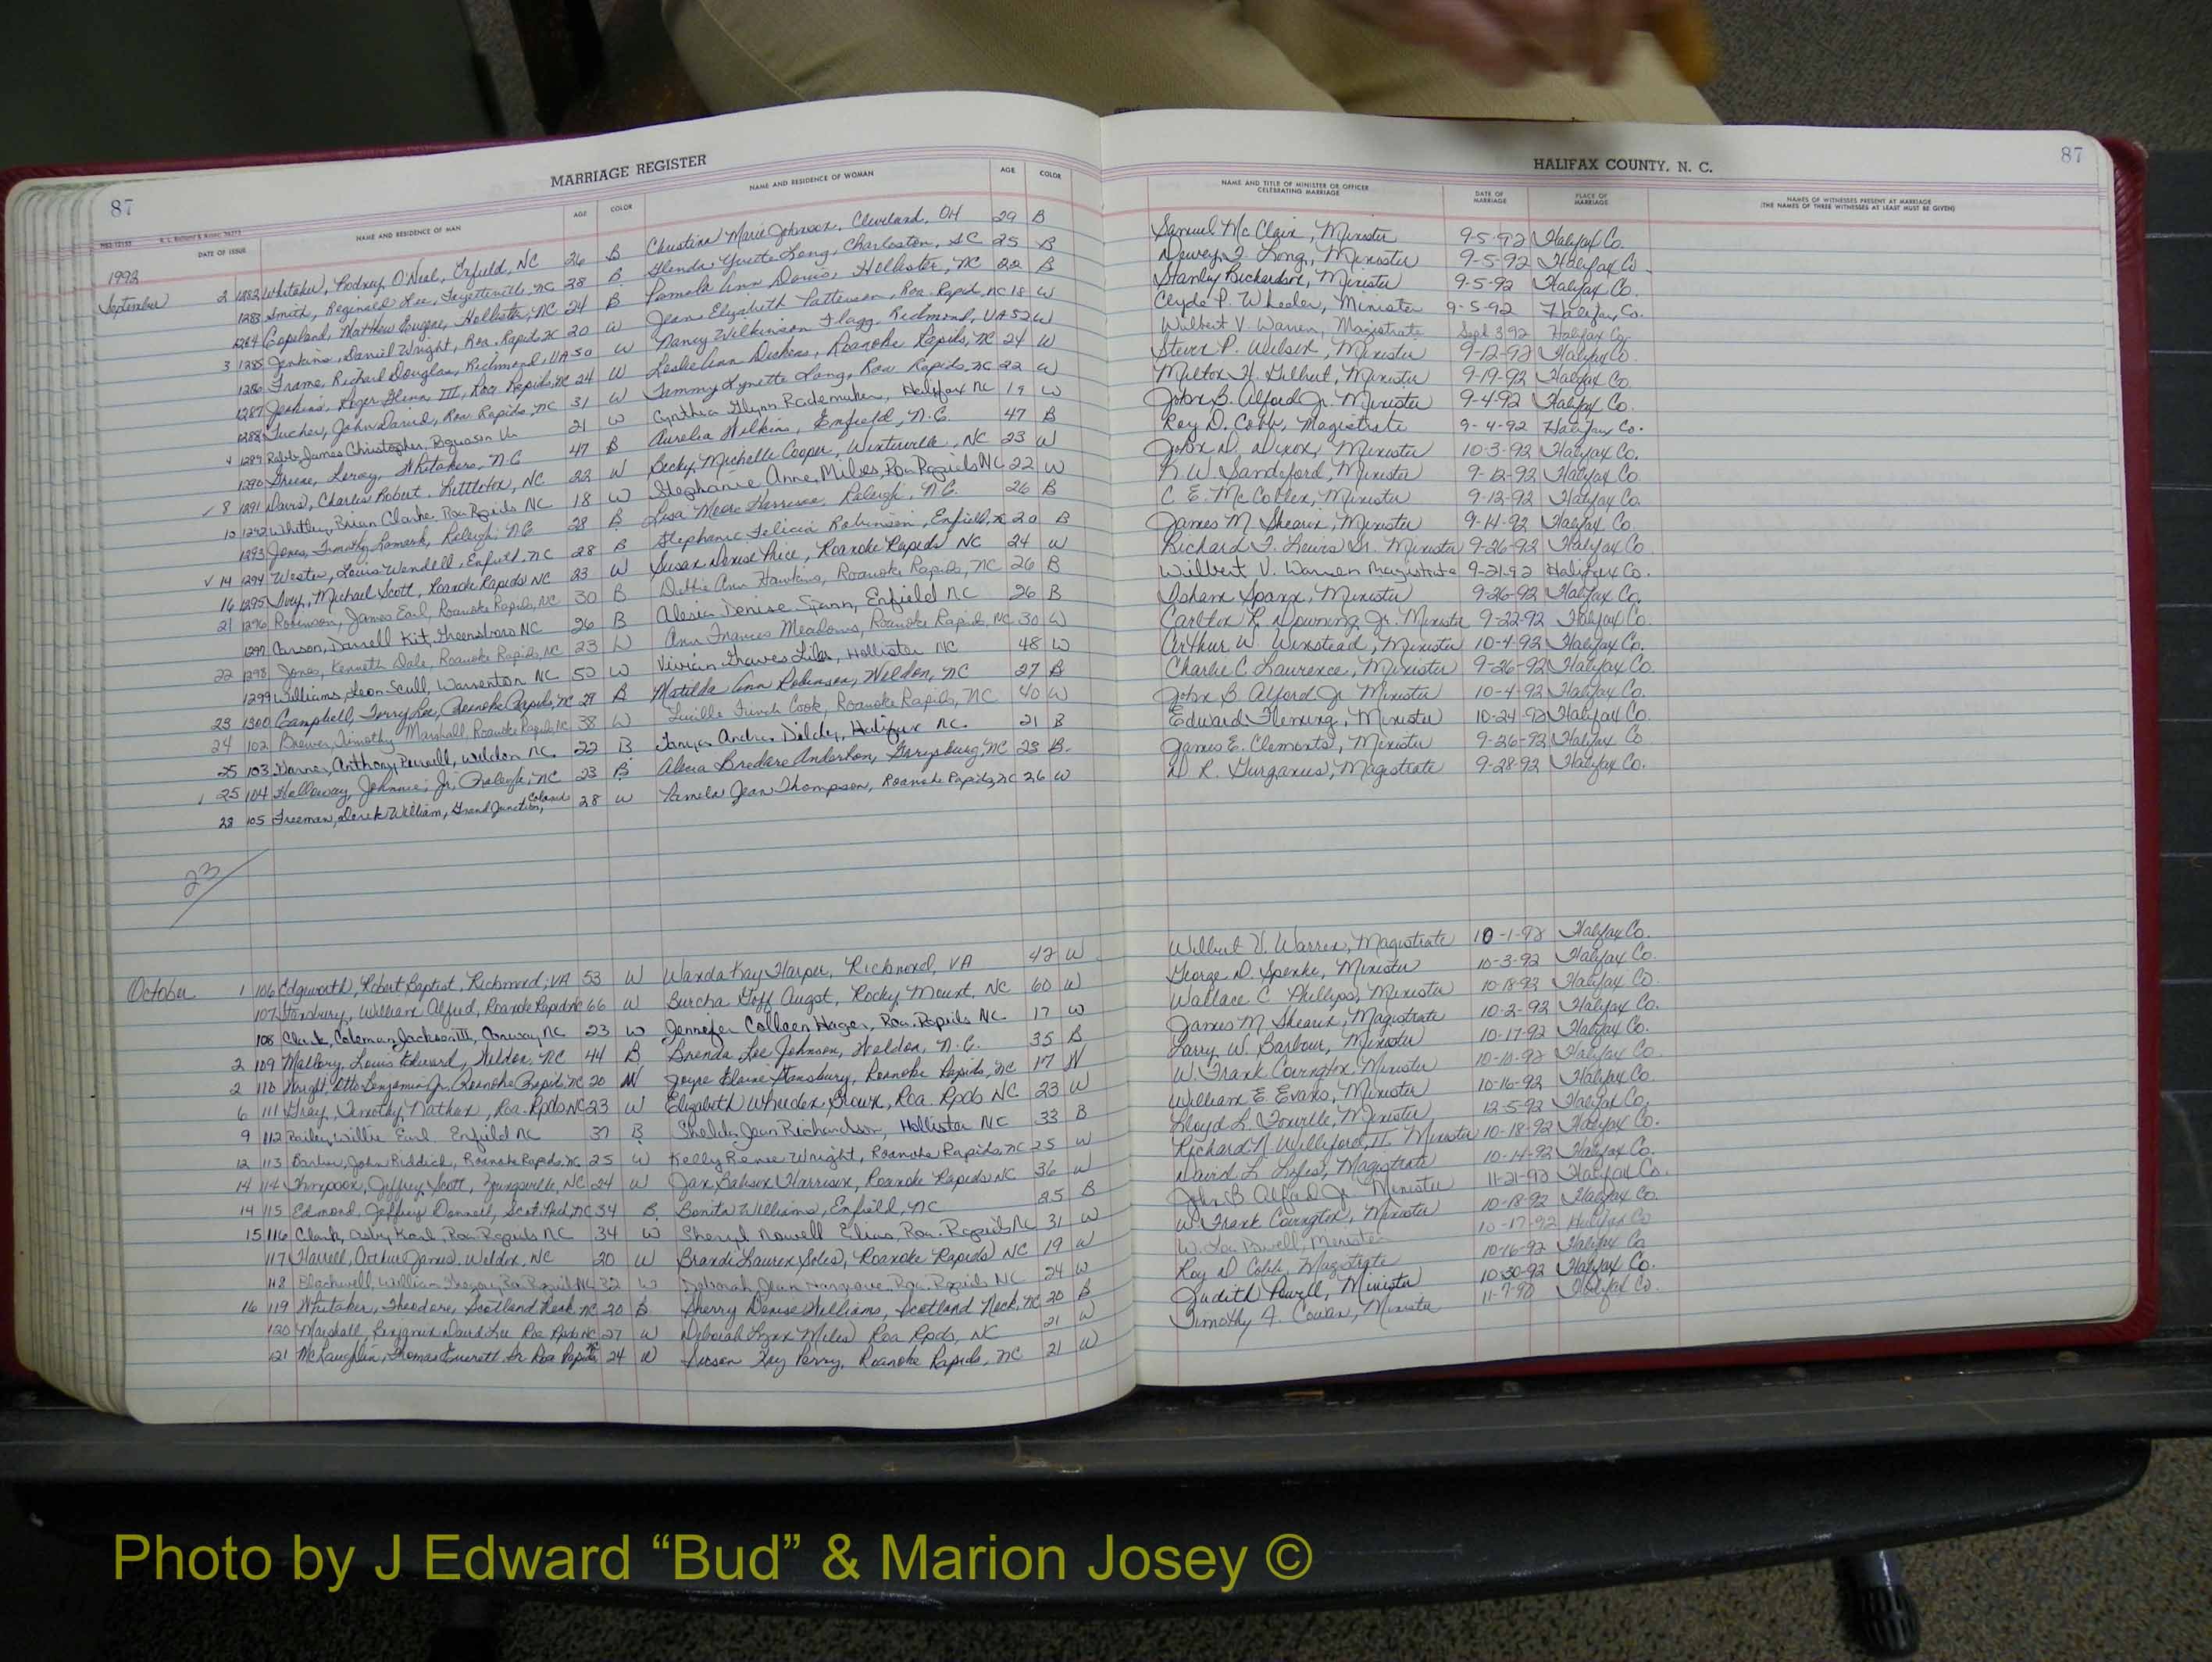 87
MARRIAGE REGISTER
HALIFAX COUNTY, N. C.
87
DATE OF ISSUE NAME AND RESIDENCE OF MAN AGE COLOR NAME AND RESIDENCE OF WOMAN AGE COLOR NAME AND TITLE OF MINISTER OR OFFICER CELEBRATING MARRIAGE DATE OF MARRIAGE PLACE OF MARRIAGE NAMES OF WITNESSES PRESENT AT MARRIAGE (THE NAMES OF THREE WITNESSES AT LEAST MUST BE GIVEN)
1992
September 2 1282 Whitaker, Rodney O'Neal, Enfield, NC 26 B Christina Marie Johnson, Cleveland, OH 29 B Samuel McClain, Minister 9-5-92 Halifax Co.
1283 Smith, Reginald Lee, Fayetteville, NC 28 B Glenda Yvette Long, Charleston, SC 25 B Dewey Long, Minister 9-5-92 Halifax Co
1284 Copeland, Matthew Eugene, Hollister, NC 24 B Pamela Ann Davis, Hollister, NC 22 B Stanley Richardson, Minister 9-5-92 Halifax Co.
3 1285 Jenkins, Daniel Wright, Roa. Rapids NC 20 W Jean Elizabeth Patterson, Roa. Rapid, NC 18 W Clyde P. Wheeler, Minister 9-5-92 Halifax Co.
1286 Frame, Richard Douglas, Richmond, VA 50 W Nancy Wilkinson Flagg, Richmond, VA 52 W Wilbert V. Warren, Magistrate Sept 3, 92 Halifax Co
1287 Jenkins, Roger Glenn III, Roa Rapids, NC 24 W Leslie Ann Dickens, Roanoke Rapids, NC 24 W Steven P. Wilson, Minister 9-12-92 Halifax Co.
1288 Tucker, John David, Roa Rapids, NC 31 W Tammy Lynette Long, Roa Rapids, NC 22 W Milton H. Gilbert, Minister 9-19-92 Halifax Co.
4 1289 Robb, James Christopher, 21 W Cynthia Glynn Rademaker, Halifax NC 19 W John B. Alford Jr. Minister 9-4-92 Halifax Co.
1290 Greene, Leroy, Whitakers, N.C 47 B Aurelia Wilkins, Enfield, N.C. 47 B Roy D. Cobb, Magistrate 9-4-92 Halifax Co.
8 1291 Davis, Charles Robert, Littleton, NC 22 W Becky Michelle Cooper, Winterville, NC 23 W John D. Dixon, Minister 10-3-92 Halifax Co.
10 1292 Whitley, Brian Clarke, Roa Rapids NC 18 W Stephanie Anne Miles, Roa Rapids NC 22 W W. Sandeford, Minister 9-12-92 Halifax Co.
1293 Jones, Timothy Lamark, Raleigh, N.C. 28 B Lisa Harrison Raleigh, N.C. 26 B C. E. McCollen, Minister 9-12-92 Halifax Co.
14 1294 Wester, Louis Wendell, Enfield, NC 28 B Stephanie Felicia Robinson, Enfield, NC 20 B James M. Shearin, Minister 9-14-92 Halifax Co.
16 1295 Ivey, Michael Scott, Roanoke Rapids NC 23 W Susan Denise Price, Roanoke Rapids NC 24 W Richard F. Lewis Sr. Minister 9-26-92 Halifax Co.
21 1296 Robinson, James Earl, Roanoke Rapids, NC 30 B Debbie Ann Hawkins, Roanoke Rapids, NC 26 B Wilbert V. Warren Magistrate 9-21-92 Halifax Co.
1297 Carson, Darrell Kit, Greensboro NC 26 B Alesia Denise Spann, Enfield NC 26 B Isham Spann, Minister 9-26-92 Halifax Co.
22 1298 Jones, Kenneth Dale, Roanoke Rapids, NC 23 W Ann Frances Meadows, Roanoke Rapids, NC 30 W Carlton L. Downing, Jr. Minister 9-22-92 Halifax Co.
1299 Williams, Leon Scull, Warrenton NC 50 W Vivian Graves Liles, Hollister NC 48 W Arthur W. Winstead, Minister 10-4-92 Halifax Co.
23 1300 Campbell, Terry Lee, Roanoke Rapids, NC 29 B Matilda Ann Robinson, Weldon, NC 27 B Charlie C. Laurence, Minister 9-26-92 Halifax Co.
24 102 Brewer, Timothy Marshall, Roanoke Rapids, NC 38 W Lucille French Cook, Roanoke Rapids, NC 40 W John B Alford Jr Minister 10-4-92 Halifax Co.
25 103 Garner, Anthony Purnell, Weldon NC 22 B Tanya Andrea Dildy, Halifax NC. 21 B Edward Fleming, Minister 10-24-92 Halifax Co.
25 104 Holloway, Johnnie, Jr, Raleigh, NC 23 B Alecia Bredare Anderson, Garysburg, NC 23 B James E. Clements, Minister 9-26-92 Halifax Co
28 105 Freeman, Derek William, Grand Junction, Colorado 28 W Pamela Jean Thompson, Roanoke Rapids, NC 26 W R. Gurganus, Magistrate 9-28-92 Halifax Co.
23
October 1 106 Edgeworth, Robert Baptist, Richmond, VA 53 W Wanda Kay Harper, Richmond, VA 42 W Wilbert V. Warren, Magistrate 10-1-92 Halifax Co.
107 Stansbury, William Alfred, Roanoke Rapids NC 66 W Burcha Goff Augst, Rocky Mount, NC 60 W George D. Spence, Minister 10-3-92 Halifax Co.
108 Clark, Coleman Jackson III, Conway, NC 23 W Jennifer Colleen Hager, Roa. Rapids NC 17 W Wallace C Phillips, Minister 10-18-92 Halifax Co
2 109 Mallory, Louis Edward, Weldon, NC 44 B Brenda Lee Johnson, Weldon, N.C. 35 B James M Shearin, Magistrate 10-2-92 Halifax Co.
2 110 Wright, Otto Benjamin Jr, Roanoke Rapids NC 20 W Joyce Elaine Stansbury, Roanoke Rapids, NC 17 W Larry W. Barbour, Minister 10-17-92 Halifax Co.
6 111 Gray, Timothy Nathan, Roa. Rpds NC 23 W Elizabeth Wheeler Brown, Roa. Rpds NC 23 W W. Frank Covington Minister 10-10-92 Halifax Co.
9 112 Bailey, Willie Earl Enfield NC 37 B Shelda Jean Richardson, Hollister NC 33 B William E Evans, Minister 10-16-92 Halifax Co.
12 113 Barbour, John Riddick, Roanoke Rapids, NC 25 W Kelly Renee Wright, Roanoke Rapids, NC 25 W Lloyd L. Fonville, Minister 12-5-92 Halifax Co.
14 114 Thompson, Jeffrey Scott, Youngsville, NC 24 W Jan Harrison, Roanoke Rapids NC 36 W Richard N Williford, II Minister 10-18-92 Halifax Co.
14 115 Edmond, Jeffrey Donnell, Scot. Neck, NC 34 B Bonita Williams, Enfield, NC 25 B David L. Liles, Magistrate 10-14-92 Halifax Co.
15 116 Clark, Asby Karl, Roa Rapids NC 34 W Sheryl Nowell Elias, Roa. Rapids NC 31 W John B Alford Jr Minister 11-21-92 Halifax Co.
117 Harrell, Arthur James, Weldon, NC 20 W Brandi Lauren Soles, Roanoke Rapids NC 19 W W. Frank Covington, Minister 10-18-92 Halifax Co.
118 Blackwell, William Roa Rapids NC 32 W Deborah Jean Hargrove, Roa. Rapids NC 24 W W. Lou Powell, Minister 10-17-92 Halifax Co
16 119 Whitaker, Theodore, Scotland Neck, NC 20 B Sherry Denise Williams, Scotland Neck, NC 20 B Roy D Cobb, Magistrate 10-16-92 Halifax Co
120 Marshall, Benjamin David Lee Roa Rpds NC 27 W Deborah Lynn Miles Roa Rpds, NC 21 W Judith Powell, Minister 10-30-92 Halifax Co.
121 McLaughlin, Thomas Everett, Sr Roa Rapids NC 24 W Susan Kay Perry, Roanoke Rapids, NC 21 W Timothy A. Cowan, Minister 11-7-92 Halifax Co.
Photo by J Edward “Bud” & Marion Josey ©